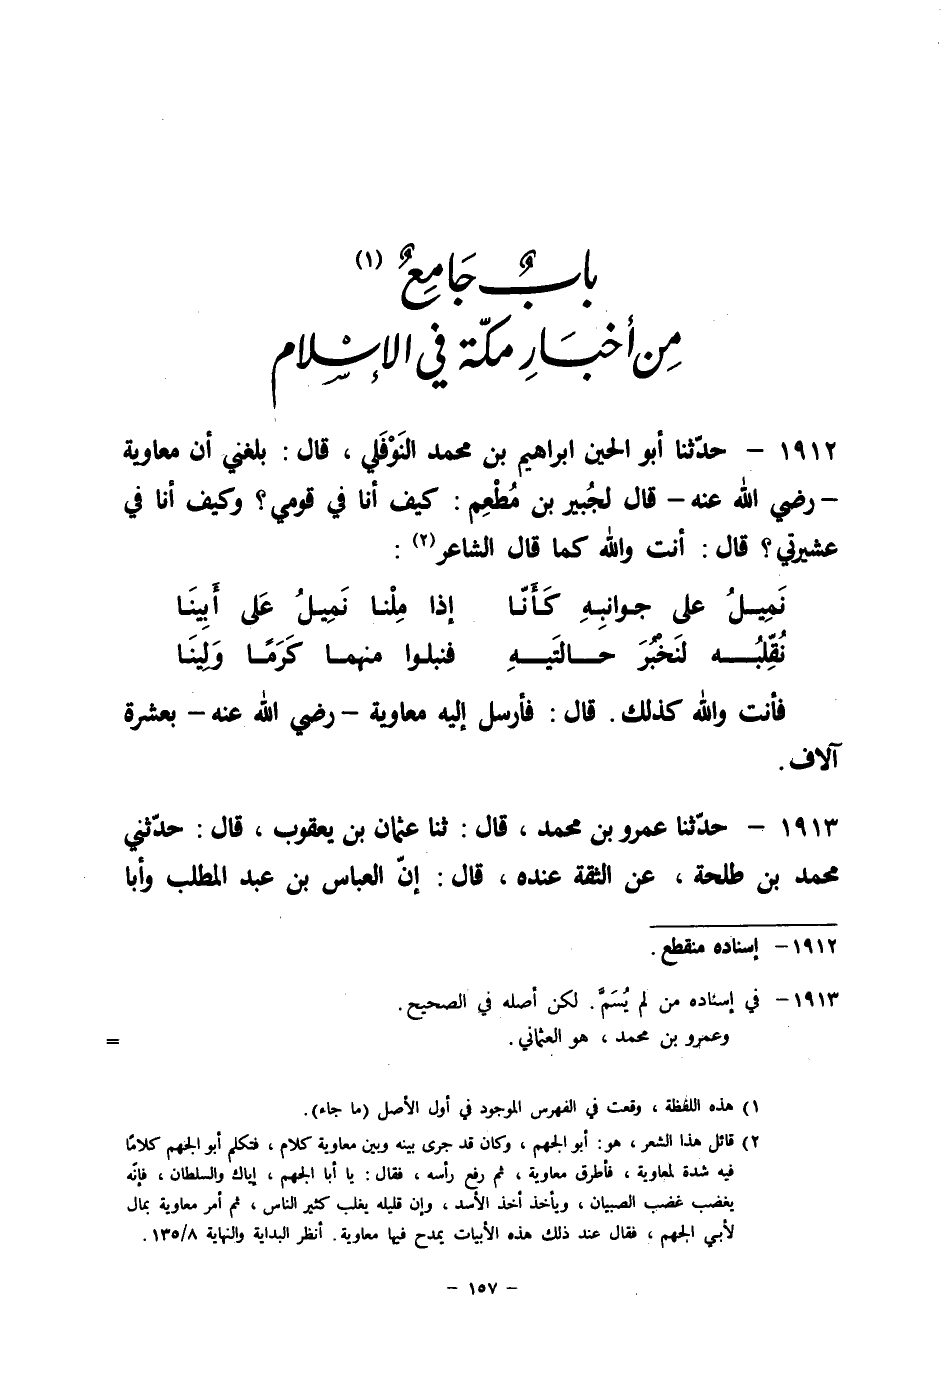 بابٌ جَامِعٌ (١)
مِن أخبَارِ مكّة في الإسْلام
١٩١٢ – حدّثنا أبو الحين ابراهيم بن محمد النَوْفَلي ، قال : بلغني أن معاوية
– رضي الله عنه – قال لجُبير بن مُطْعِم : كيف أنا في قومي؟ وكيف أنا في
عشيرتي؟ قال : أنت والله كما قال الشاعر(٢) :
نَمِيلُ على جوانبِهِ كَأَنّا إذا مِلْنا نَمِيلُ عَلى أَبِينَا
نُقَلِّبُه لَنَخْبُرَ حالتَيهِ فنبلوا منهما كَرَمًا وَلِينَا
فأنت والله كذلك . قال : فأرسل إليه معاوية – رضي الله عنه – بعشرة
آلاف .
١٩١٣ – حدّثنا عمرو بن محمد ، قال : ثنا عثمان بن يعقوب ، قال : حدّثني
محمد بن طلحة ، عن الثقة عنده ، قال : إنّ العباس بن عبد المطلب وأبا
١٩١٢– إسناده منقطع .
١٩١٣– في إسناده من لم يُسَمَّ . لكن أصله في الصحيح .
وعمرو بن محمد ، هو العثماني . =
١) هذه اللفظة ، وقعت في الفهرس الموجود في أول الأصل (ما جاء) .
٢) قائل هذا الشعر ، هو : أبو الجهم ، وكان قد جرى بينه وبين معاوية كلام ، فتكلم أبو الجهم كلامًا
فيه شدة لمعاوية ، فأطرق معاوية ، ثم رفع رأسه ، فقال : يا أبا الجهم ، إياك والسلطان ، فإنّه
يغضب غضب الصبيان ، ويأخذ أخذ الأسد ، وإن قليله يغلب كثير الناس ، ثم أمر معاوية بمال
لأبي الجهم ، فقال عند ذلك هذه الأبيات يمدح فيها معاوية . أنظر البداية والنهاية ١٣٥/٨ .
– ١٥٧ –